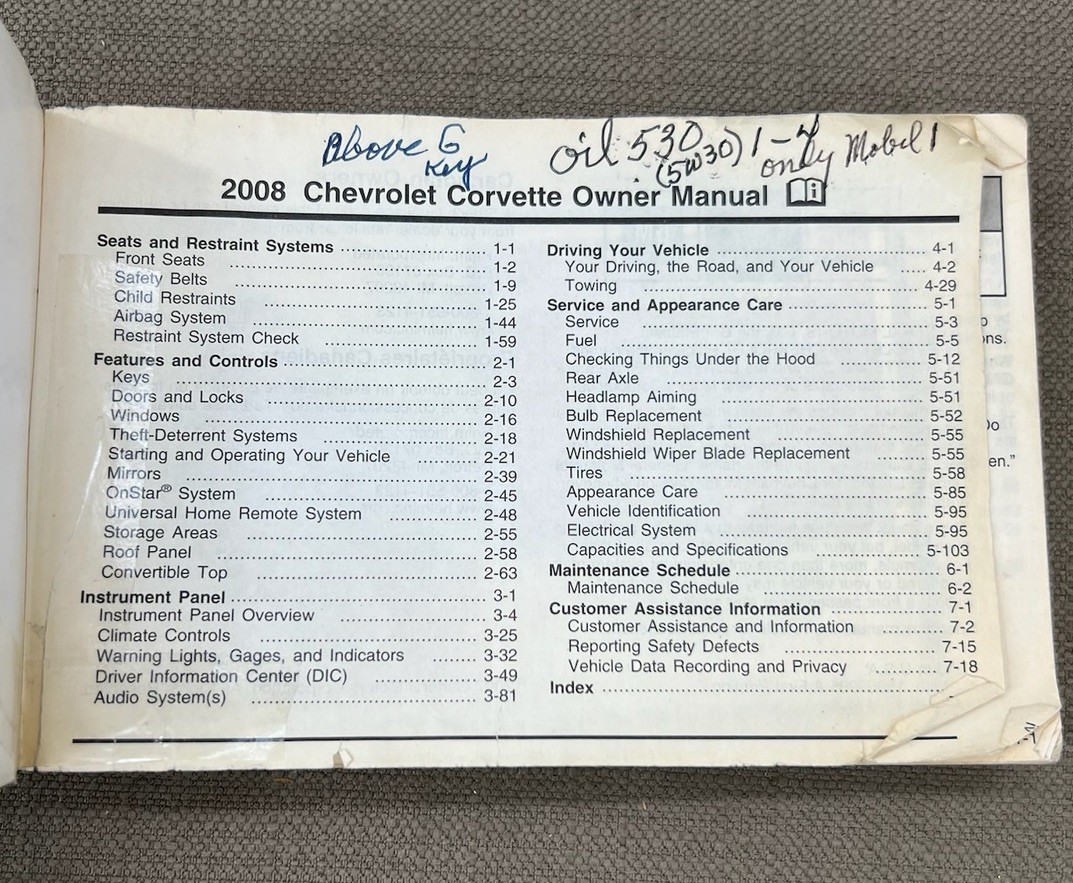 Above G
Key
oil 530 1-4 only Mobel 1
(5W30)
2008 Chevrolet Corvette Owner Manual
Seats and Restraint Systems ........ 1-1
Front Seats ........ 1-2
Safety Belts ........ 1-9
Child Restraints ........ 1-25
Airbag System ........ 1-44
Restraint System Check ........ 1-59
Features and Controls ........ 2-1
Keys ........ 2-3
Doors and Locks ........ 2-10
Windows ........ 2-16
Theft-Deterrent Systems ........ 2-18
Starting and Operating Your Vehicle ........ 2-21
Mirrors ........ 2-39
OnStar® System ........ 2-45
Universal Home Remote System ........ 2-48
Storage Areas ........ 2-55
Roof Panel ........ 2-58
Convertible Top ........ 2-63
Instrument Panel ........ 3-1
Instrument Panel Overview ........ 3-4
Climate Controls ........ 3-25
Warning Lights, Gages, and Indicators ........ 3-32
Driver Information Center (DIC) ........ 3-49
Audio System(s) ........ 3-81
Driving Your Vehicle ........ 4-1
Your Driving, the Road, and Your Vehicle ..... 4-2
Towing ........ 4-29
Service and Appearance Care ........ 5-1
Service ........ 5-3
Fuel ........ 5-5
Checking Things Under the Hood ........ 5-12
Rear Axle ........ 5-51
Headlamp Aiming ........ 5-51
Bulb Replacement ........ 5-52
Windshield Replacement ........ 5-55
Windshield Wiper Blade Replacement ........ 5-55
Tires ........ 5-58
Appearance Care ........ 5-85
Vehicle Identification ........ 5-95
Electrical System ........ 5-95
Capacities and Specifications ........ 5-103
Maintenance Schedule ........ 6-1
Maintenance Schedule ........ 6-2
Customer Assistance Information ........ 7-1
Customer Assistance and Information ........ 7-2
Reporting Safety Defects ........ 7-15
Vehicle Data Recording and Privacy ........ 7-18
Index ........
ns.
en."